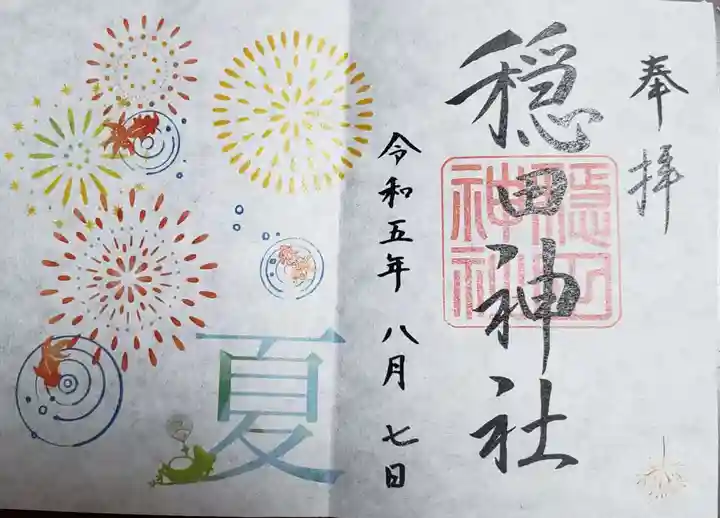 奉拝
穏田神社
穏田
神社
令和五年 八月 七日
夏